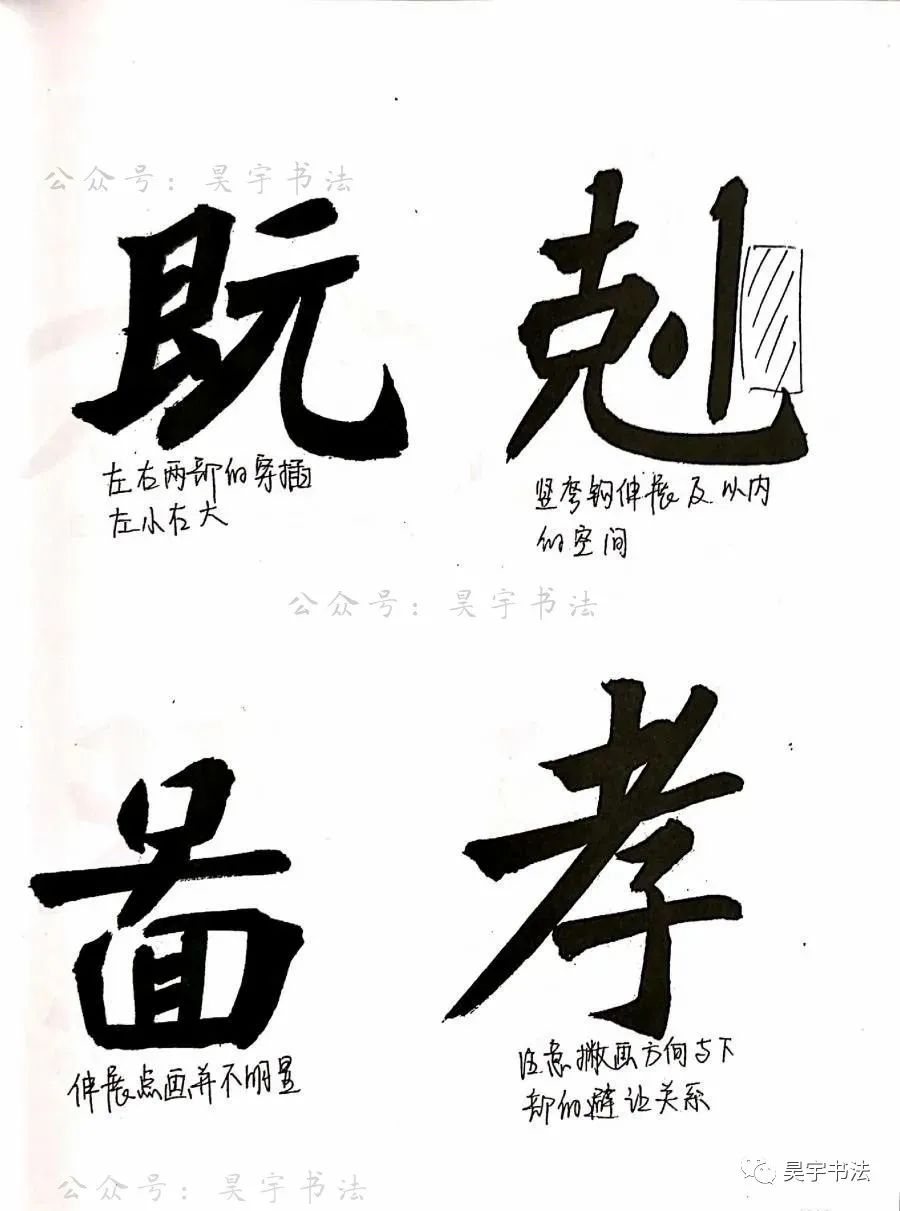 公众号：昊宇书法
既 剋
左右两部的穿插
左小右大
竖弯钩伸展及以内
的空间
公众号：昊宇书法
啚 孝
伸展点画并不明显
注意撇画方向与下
部的避让关系
公众号：昊宇书法
昊宇书法